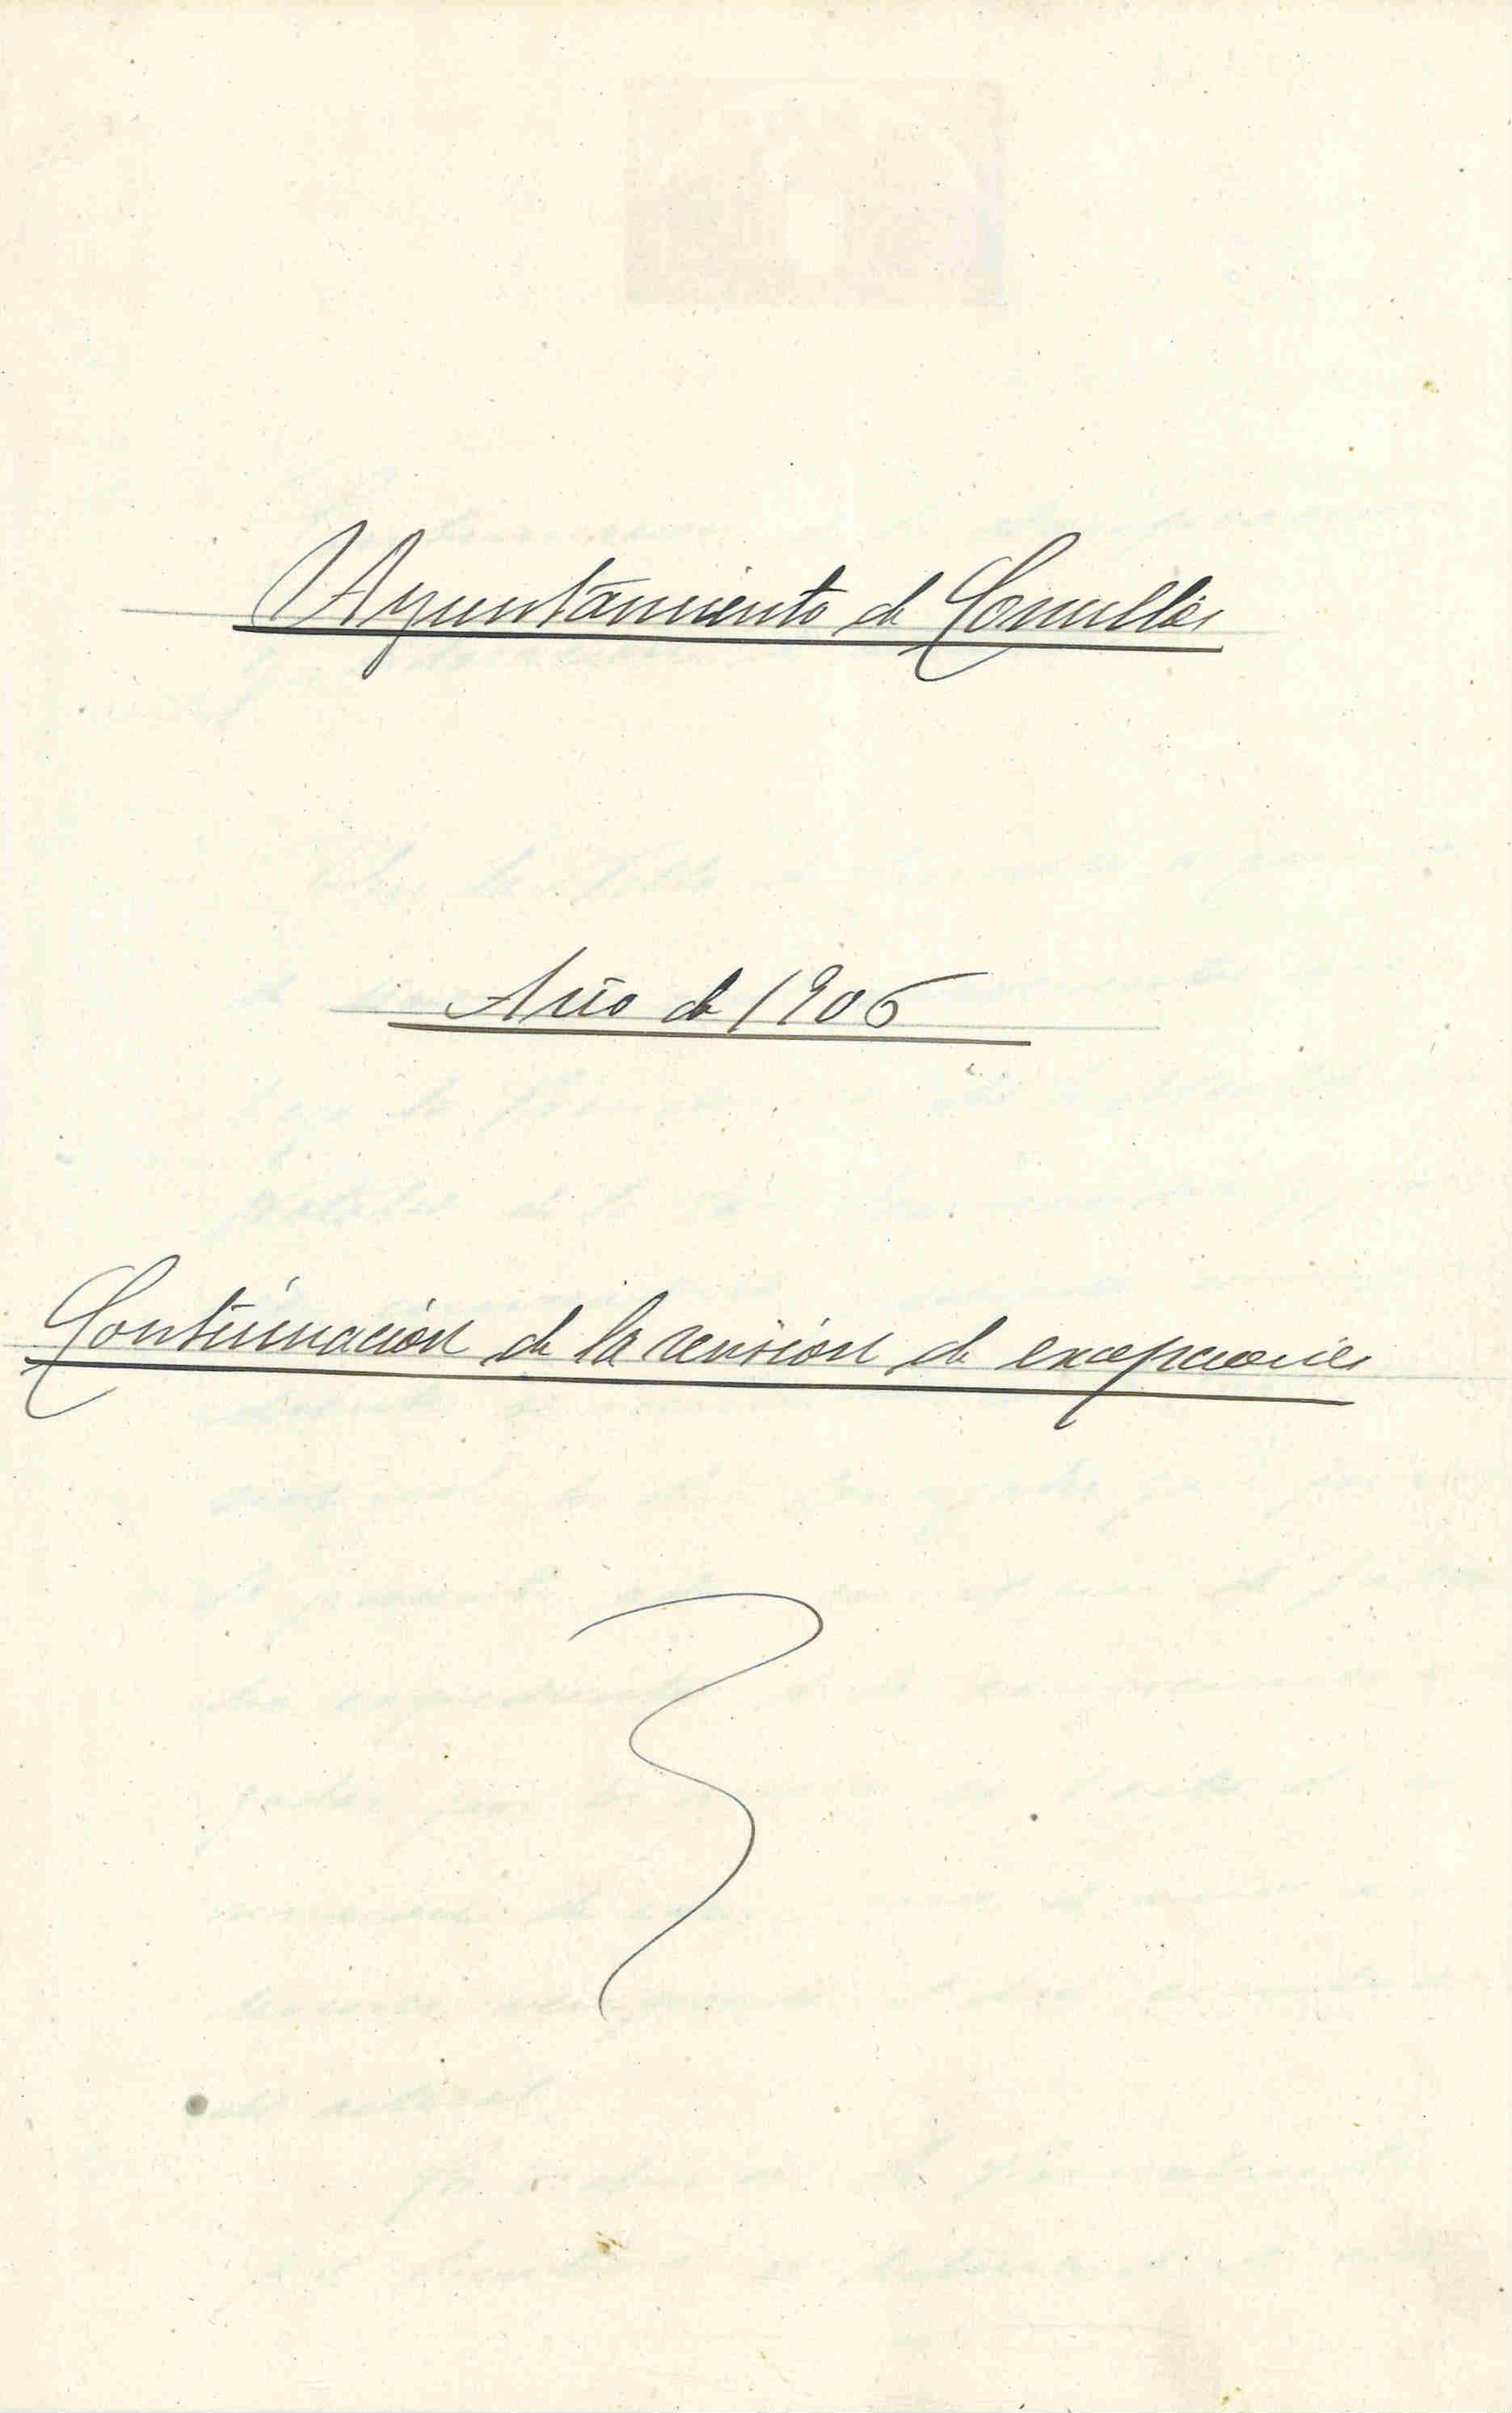 Ayuntamiento de Comillas
Año de 1906
Continuación de la revisión de excepciones